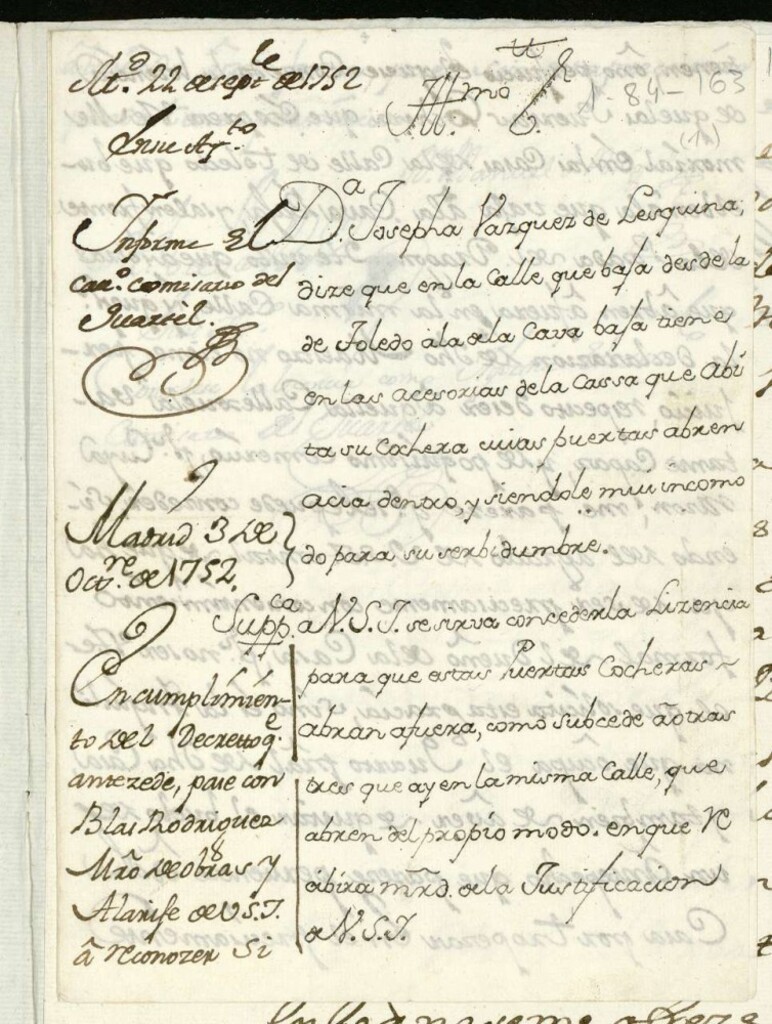 M.º 22 de sept.le de 1752
En su Ay.to
Informe el
cau.º comisario del
Quartel.
Madrid 3 de
Oct.re de 1752.
En cumplimien-
to del Decretto q.e
antezede, pase con
Blas Rodriguez
Mro de obras y
Alarife de V.S.I.
â reconozer si
Ill.mo S.r
1-84-163
(11)
D.a Josepha Vazquez de Lesquina,
dize que en la Calle que baja desde la
de Toledo a la de la Cava baja tiene
en las acesorias de la Cassa que abi
ta su Cochera cuias puertas abren
acia dentro, y siendole mui incomo
do para su serbidumbre.
Supp.ca a V.S.I. se sirva concederla Lizencia
para que estas Puertas Cocheras
abran afuera, como subcede a otras
tres que ay en la misma Calle, que
abren del propio modo. en que re
cibira mrd. de la Justificacion
de V.S.I.